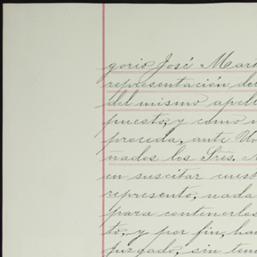 gorio José Mar
representación de
del mismo apell
puesto, y como
proceda, ante
nados los Sres.
en suscitar cues
represento, nada
para contenerlos
to, y por fin, ha
juzgado, sin